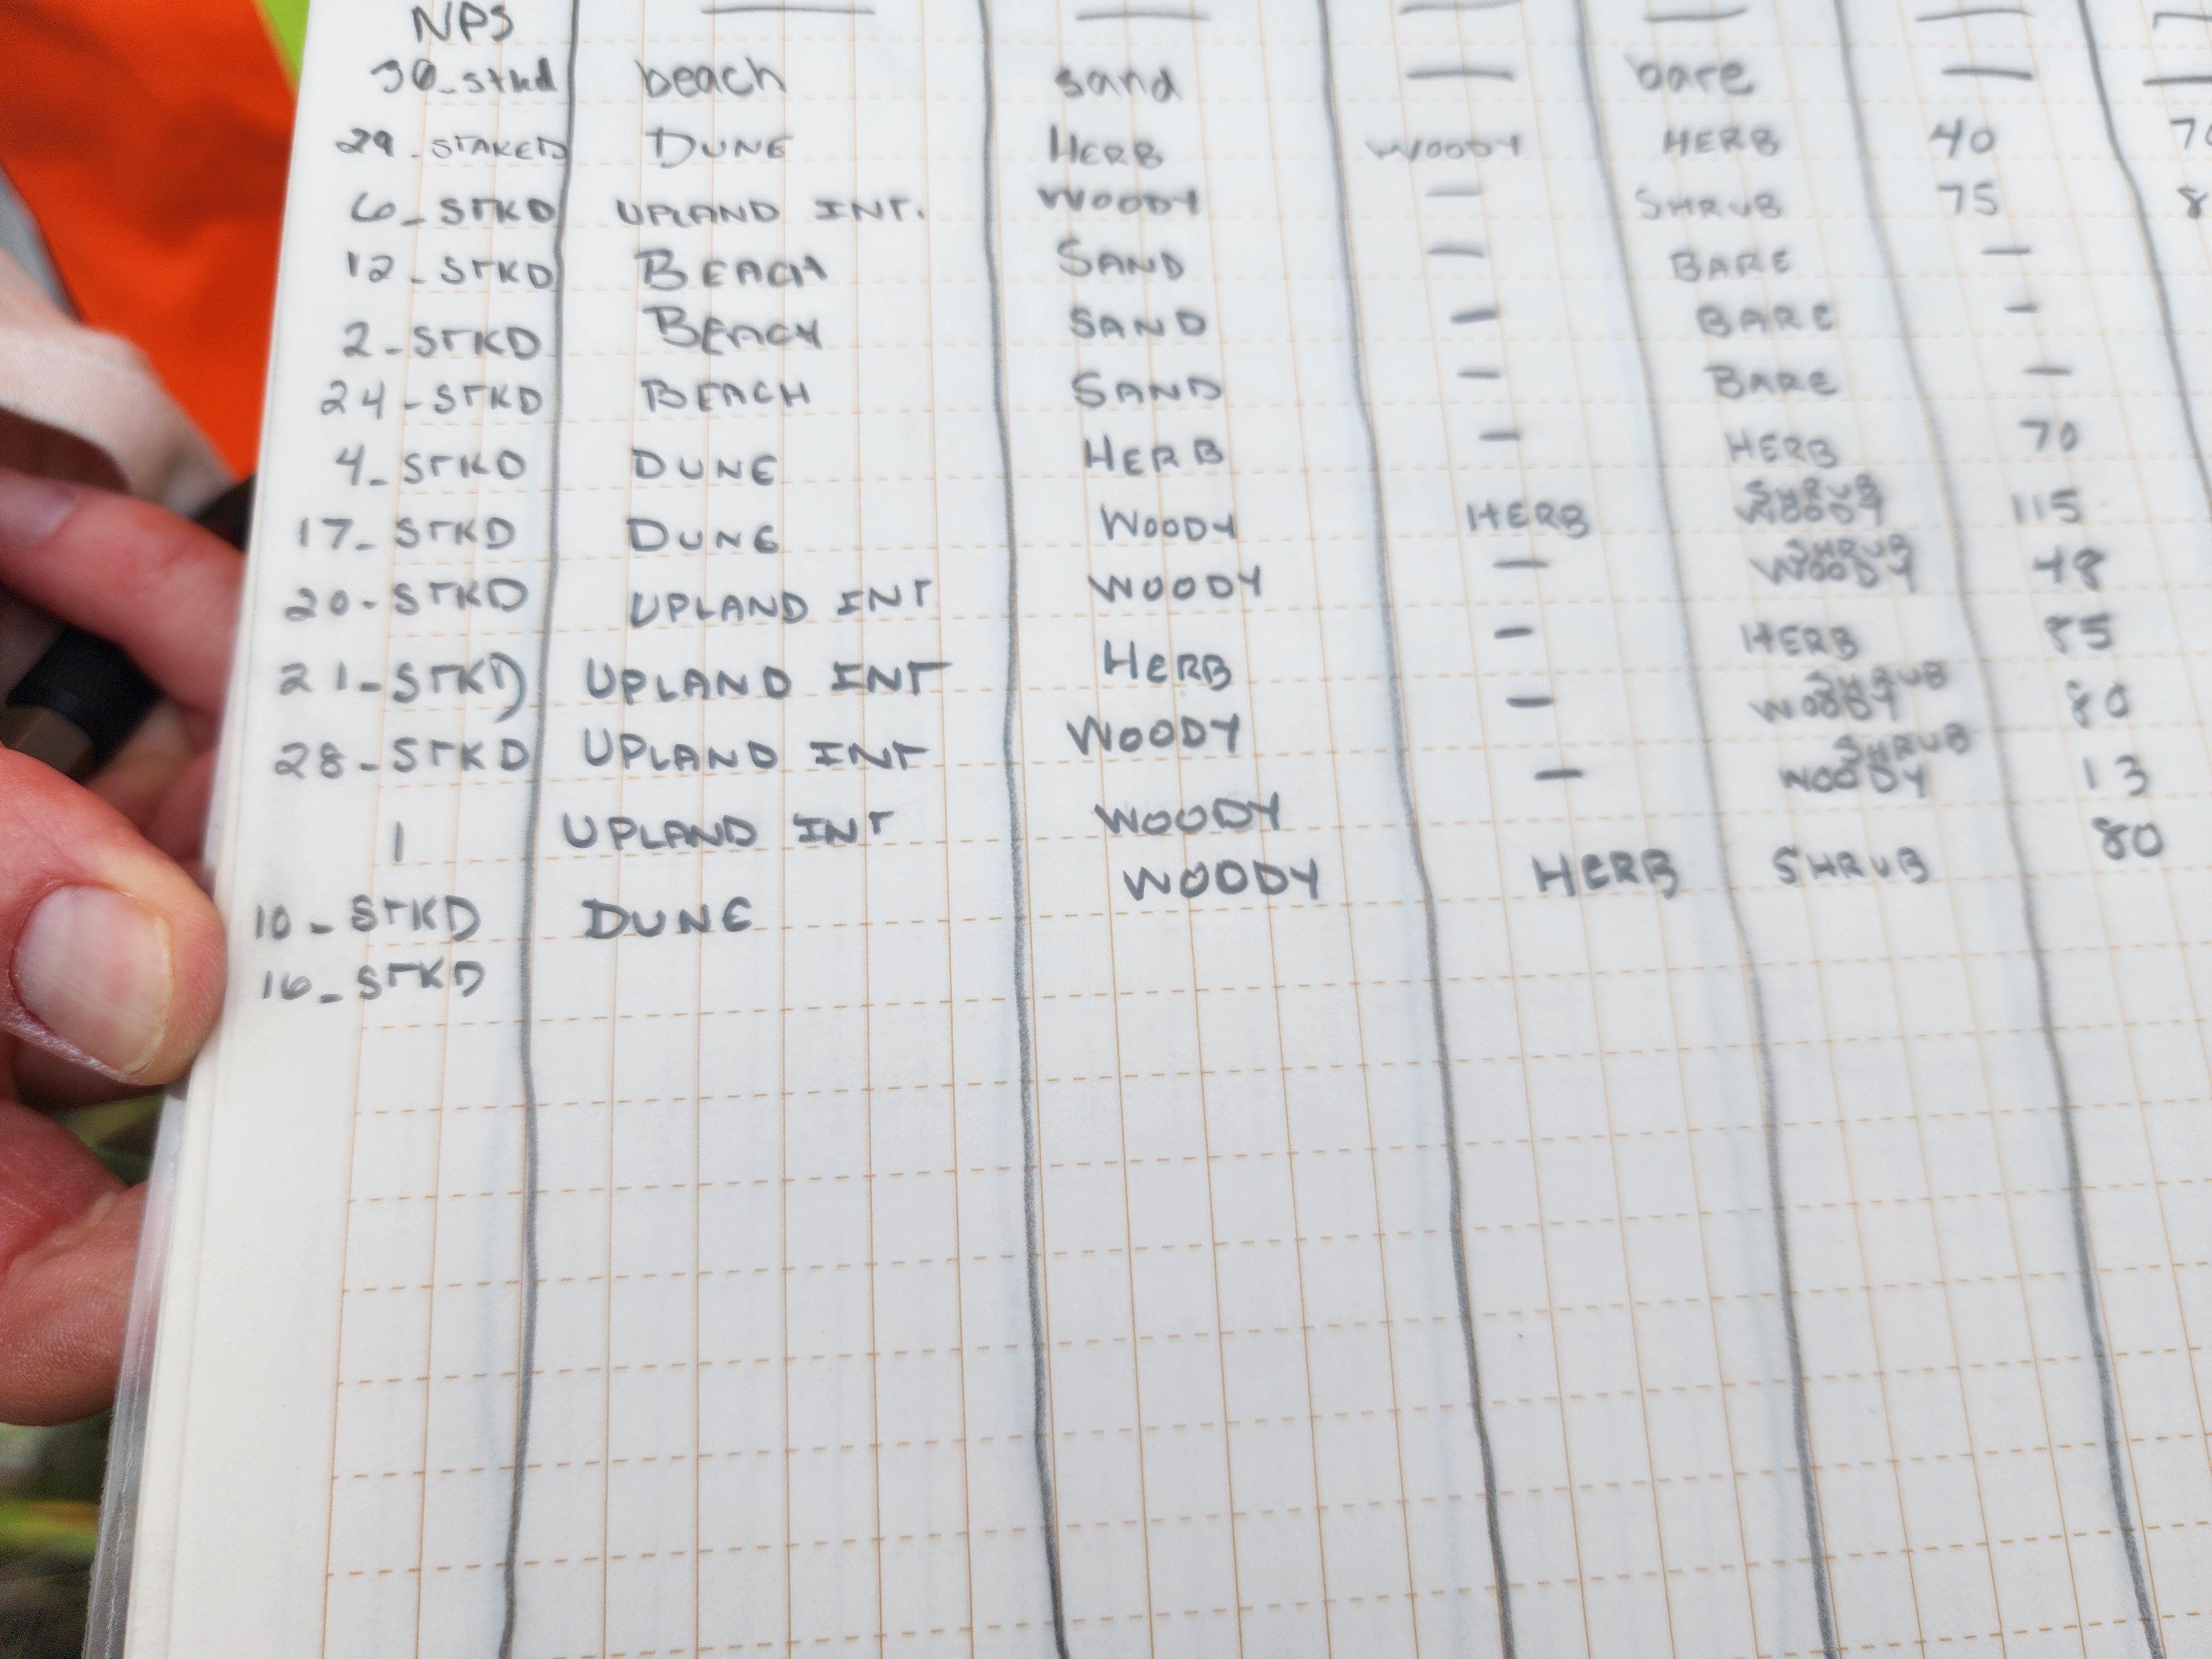 NPS — — — — —
30_stkd beach sand — bare — —
29_STAKED DUNE HERB WOODY HERB 40
6_STKD UPLAND INT. WOODY — SHRUB 75
12_STKD BEACH SAND — BARE —
2_STKD BEACH SAND — BARE —
24_STKD BEACH SAND — BARE —
4_STKD DUNE HERB — HERB 70
17_STKD DUNE WOODY HERB SHRUB WOODY 115
20_STKD UPLAND INT WOODY — SHRUB WOODY 48
21_STKD UPLAND INT HERB — HERB 85
28_STKD UPLAND INT WOODY — SHRUB WOODY 80
1 UPLAND INT WOODY — SHRUB WOODY 13
10_STKD DUNE WOODY HERB SHRUB 80
16_STKD